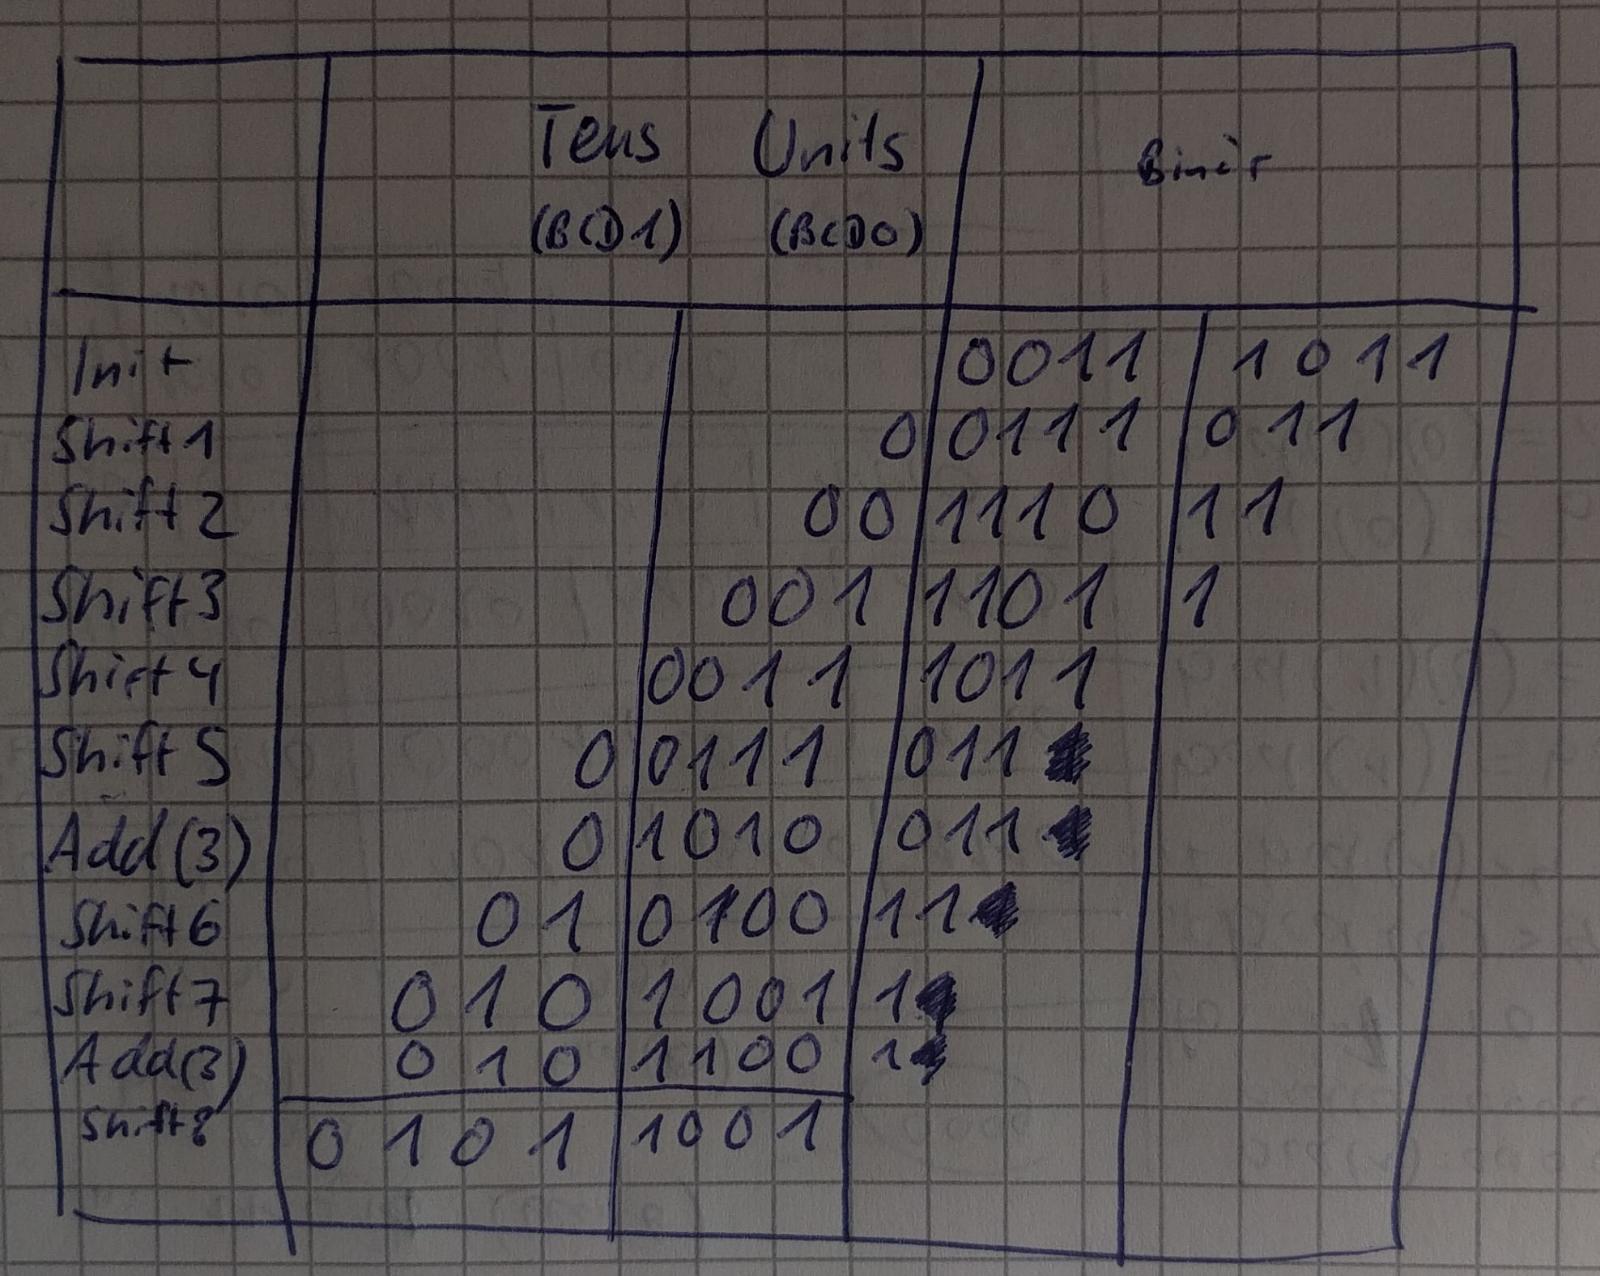 Tens Units Binär
(BCD1) (BCD0)
Init 0011 1011
Shift1 0 0111 011
Shift2 00 1110 11
Shift3 001 1101 1
Shift4 0011 1011
Shift5 0 0111 011
Add(3) 0 1010 011
Shift6 01 0100 11
Shift7 010 1001 1
Add(3) 010 1100 1
Shift8 0101 1001